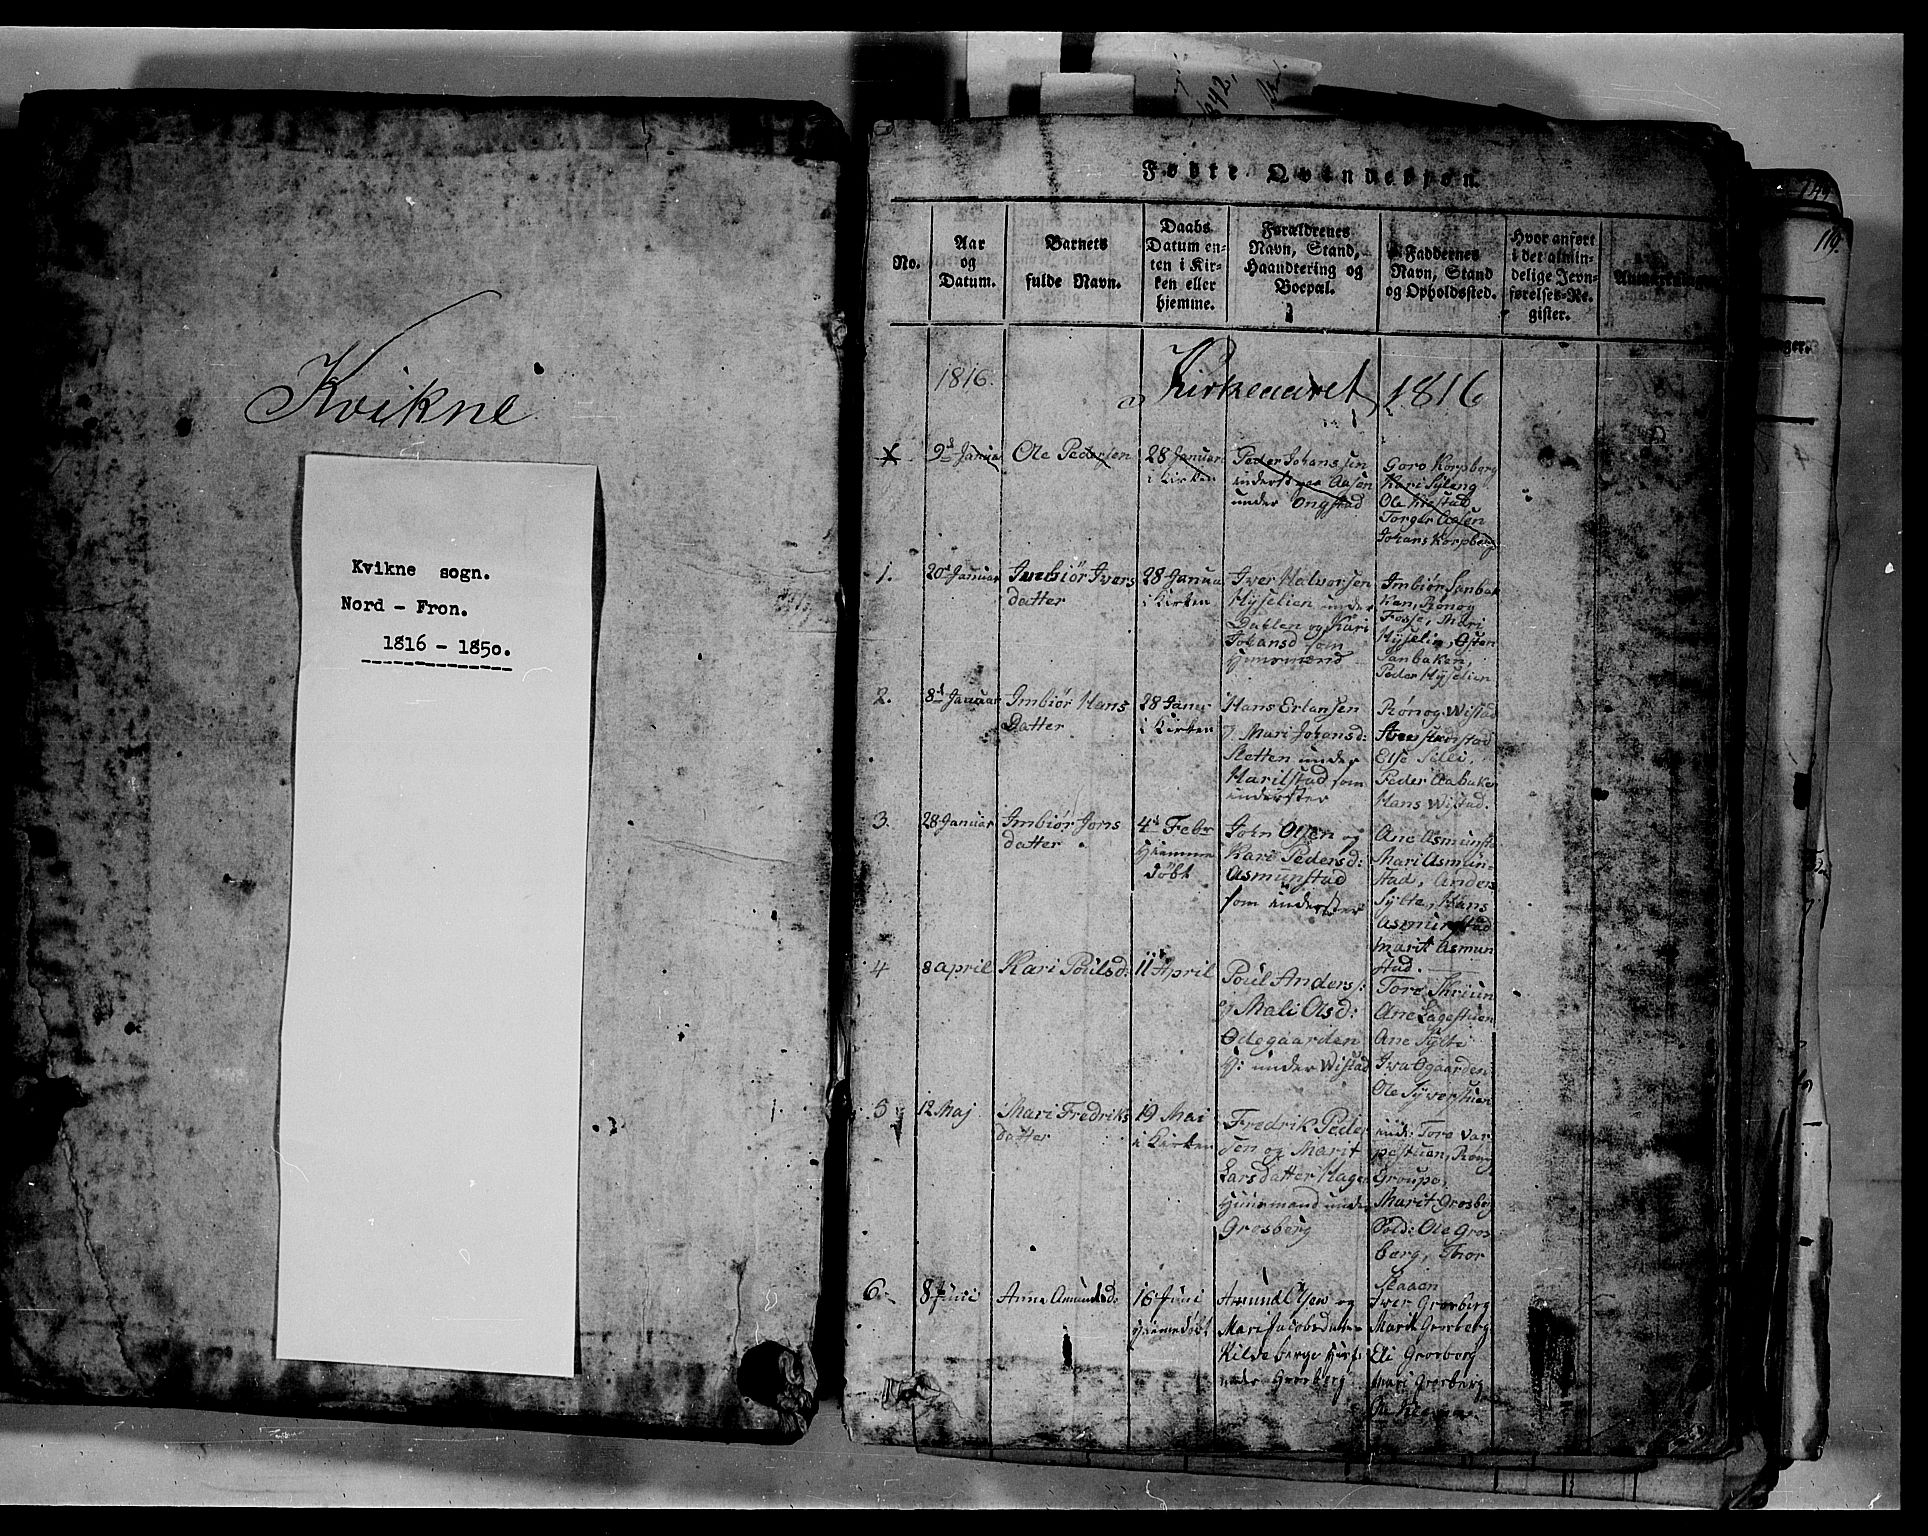 Kvikne
Kvikne sogn.
Nord - Fron.
1816 - 1850.
1.
149
119.
Fødte Qvindekjøn.
No.
Aar
og
Datum.
Barnets
fulde Navn.
Daabs
Datum en-
ten i Kir-
ken eller
hjemme.
Forældrenes
Navn, Stand,
Haandtering og
Boepæl.
Faddernes
Navn, Stand
og Opholdssted.
Hvor anført
i det almin-
delige Jevn-
førelses-Re-
gister.
Anmærkninger
1816.
Kirkeaaret 1816
9d Januar
Ole Pedersen
28 Januari
i Kirken
Peder Johanssen
inderst paa Aasen
under Ongstad
Goro Korpberg
Kari Syleng
Ole Wiestad
Torger Aasen
Johans Korpberg
1.
20d Januar
Imbiör Ivers
datter
28 Janua
i Kirken
Iver Halvorsen
Hyselien under
Dahlen og Kari
Johansd som
Huusmænd
Imbiör Sanbak
ken, Rönog
Fosse, Mari
Hyselie, Østen
Sanbaken,
Peder Hyselien
2.
8d Januar
Imbiör Hans
Datter
28 Janu
i Kirken
Hans Erlansen
og Mari Johansd:
Sletten under
Harilstad som
inderster
Rönog Wistad
Else Sylli,
Peder Aabaken
Hans Wistad.
3.
28 Januar
Imbiör Jons
datter
4d Febr
Hiemme
döbt
John Olsen og
Kari Pedersd:
Asmunstad
som inderster
Ane Asmunsta
Mari Asmun-
stad, Anders
Sylte, Hans
Asmunstad
Marit Asmun
stad.
4
8 april
Kari Poulsd:
11 April
Poul Anders:
og Mali Olsd:
Ødegaarden
H: under Wistad
Tore
Ane Lagestuen
Ane Sylte
Iva Ogaarden
Ole Syverstuen
5
12 Maj
Mari Fredriks
datter
19 Mai
i Kirken
Fredrik Peder
sen og Marit
Larsdatter Hagen
Huusmand under
Grosberg
Tore Var
pestuen, Rönog
Groupe,
Marit Grosberg
Sold: Ole Gros
berg, Thor
Skaaen
6.
8 Juni
Anne Amundsd:
16 Juni
Hiemedöbt
Amund Olsen og
Mari Jacobsdatter
Kildeberget Huusf
under Grosberg
Iver Grosberg
Marit Grosberg
Eli Grosberg
Mari Grosberg